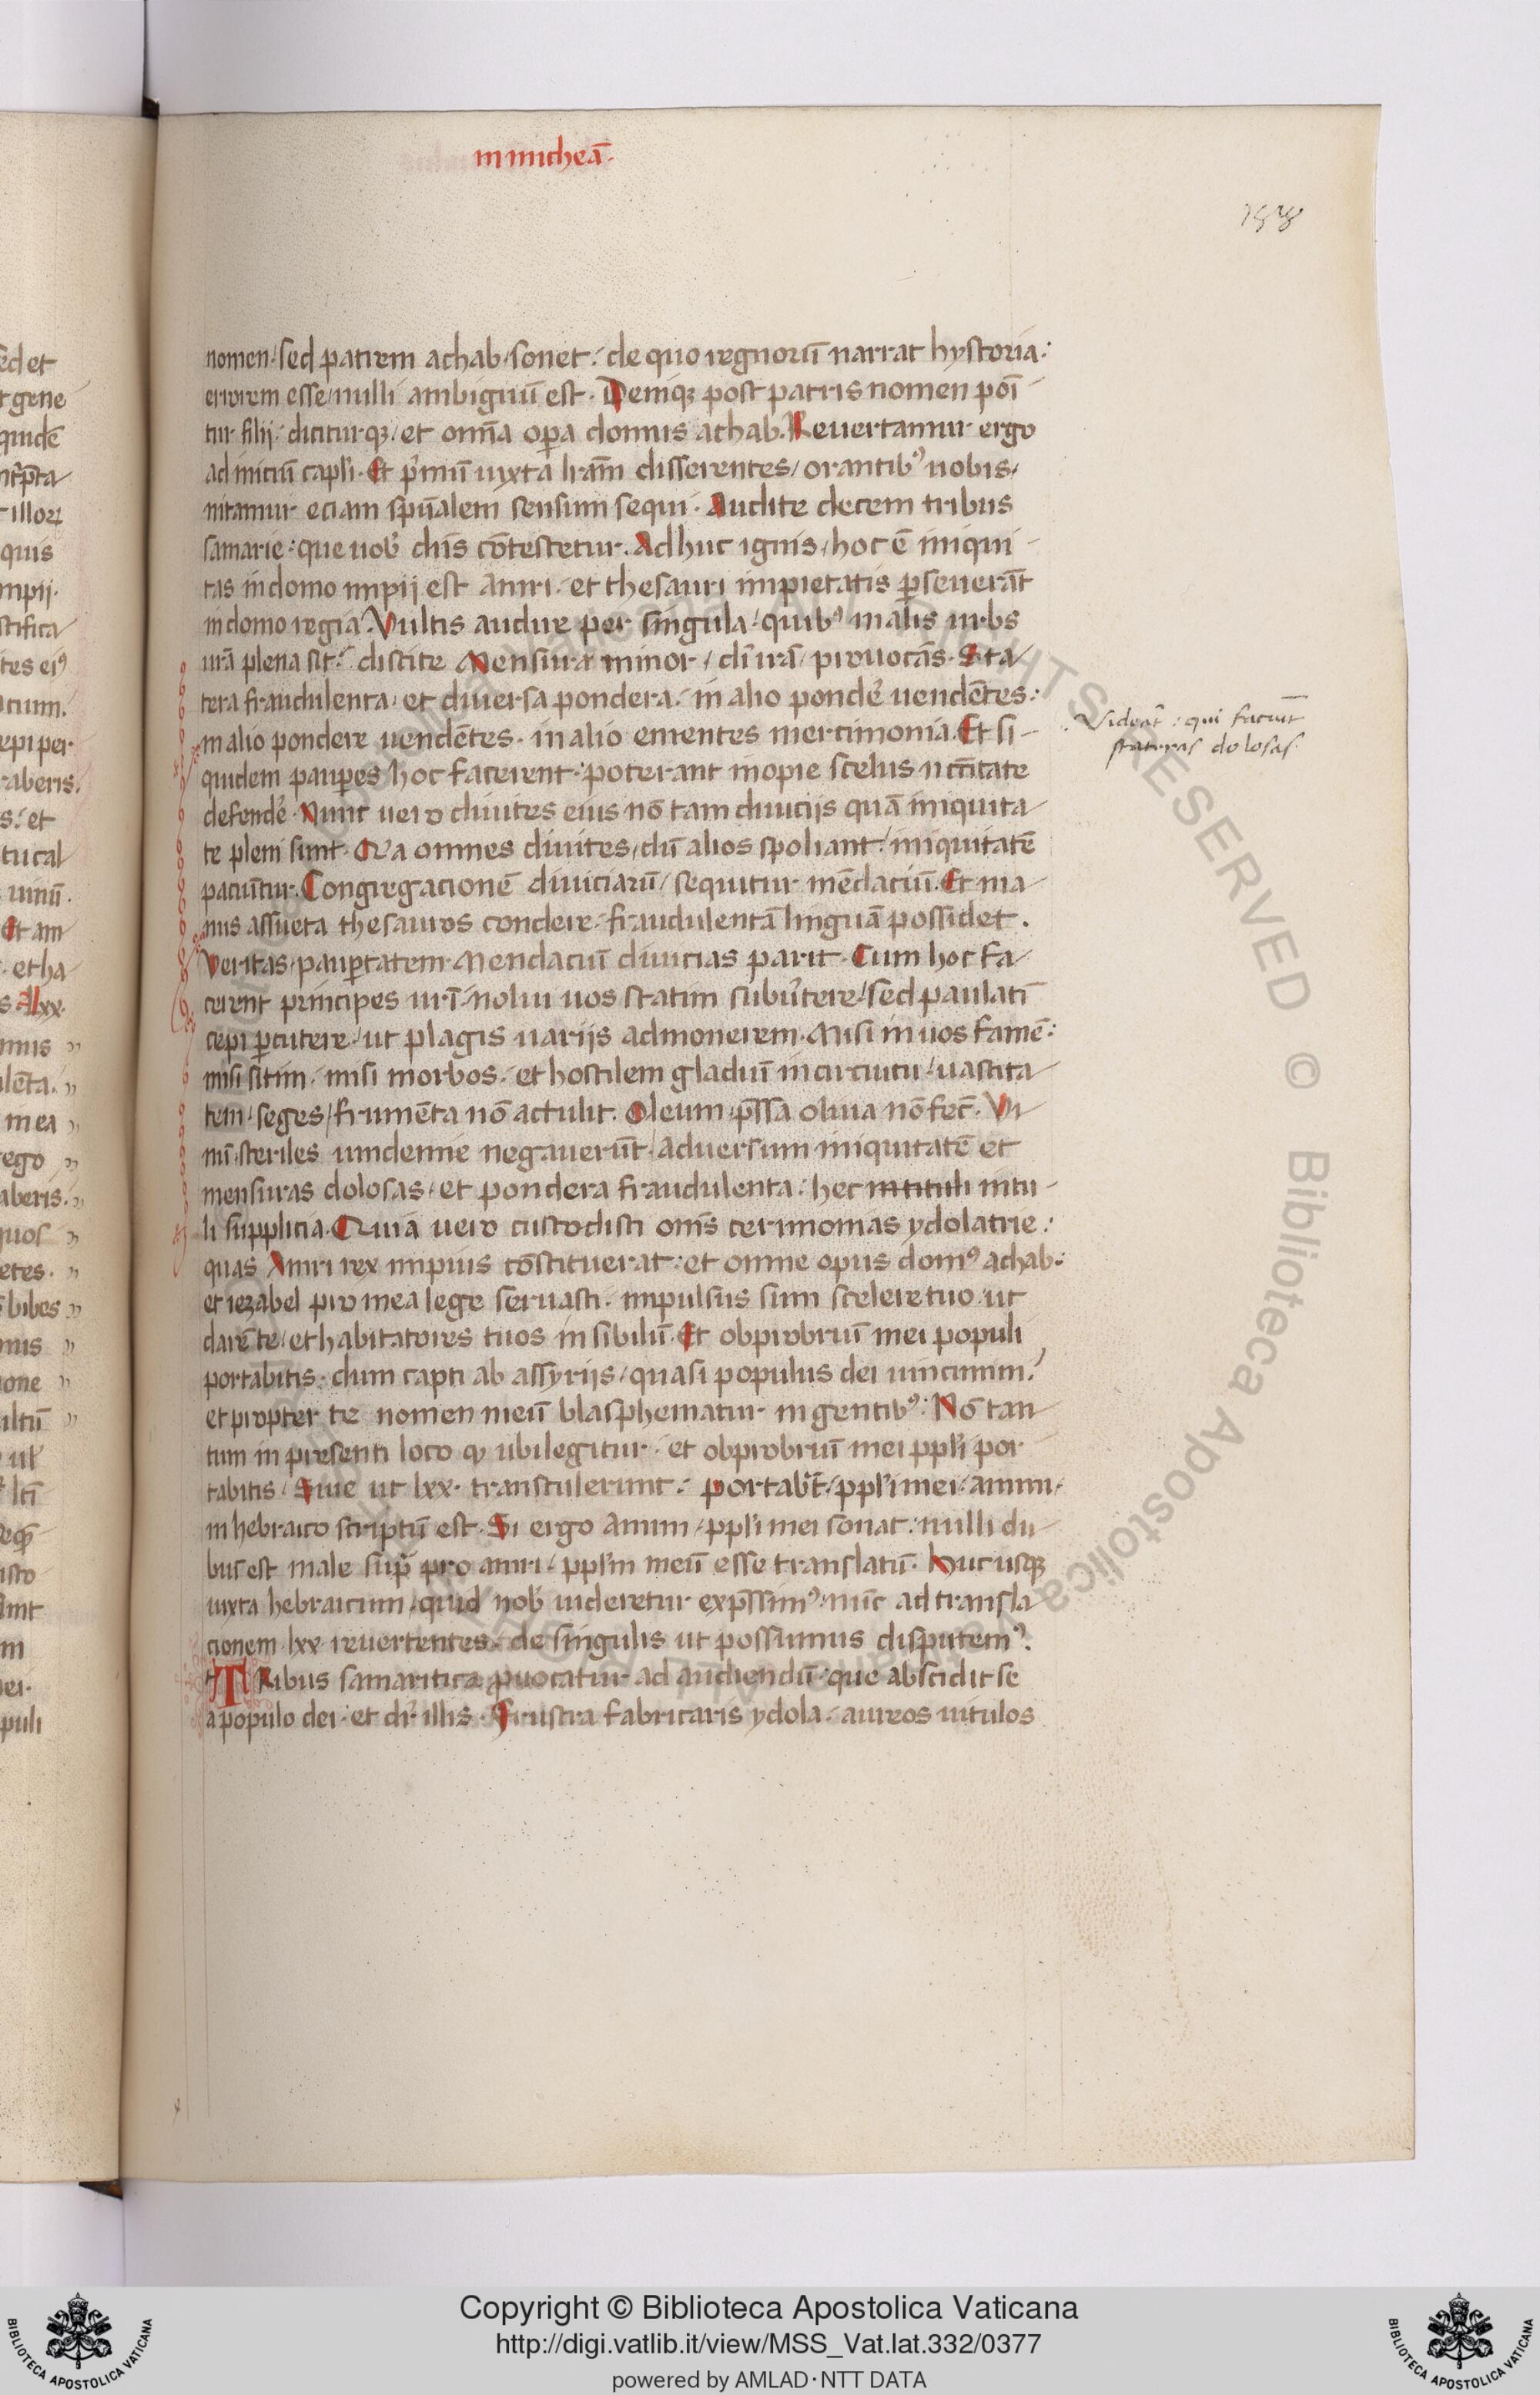 in micheā.
188
nomen. sed patrem achab sonet: de quo regnorū narrat hystoria:
errorem esse nulli ambiguū est. Deniqȝ post patris nomen poī
tur filij: diciturqȝ et om̄a oꝑa domus achab. Reuertamur ergo
ad iniciū capl'i. Et p'mū iuxta lr̄am disserentes, orantibꝰ uobis,
nitamur eciam spūalem sensum sequi. Audite decem tribus
samarie: que uob' dn̄s cōtestetur. Adhuc ignis, hoc ē iniqui
tas in domo impij est Amri. et thesauri impietatis ꝑseuerāt
in domo regia. Vultis audire per singula, quibꝰ malis urbs
ur̄a plena sit? discite Mensura minor, dī irā prouocās. Sta
tera fraudulenta, et diuersa pondera. in alio pondē uendētes:
in alio pondere uendētes. in alio ementes mercimonia. Et si
quidem pauꝑes hoc facerent: poterant inopie scelus nccītate
defendē. Nunc uero diuites eius nō tam diuicijs quā iniquita
te pleni sunt. Qa omnes diuites, dū alios spoliant, iniquitatē
paciūtur. Congregacionē diuiciarū, sequitur mēdaciū. Et ma
nus assueta thesauros condere, fraudulentā linguā possidet.
Veritas, pauꝑtatem. Mendaciū diuicias parit. Cum hoc fa
cerent principes ur̄i. nolui uos statim subūtere, sed paulatī
cepi ꝑcutere, ut plagis uarijs admonerem. Misi in uos famē:
misi sitim. misi morbos. et hostilem gladiū in circuitu, uastita
tem. seges, frumēta nō attulit. Oleum, p̄ssa oliua nō fec̄. Vi
nū, steriles uindemie negauerūt. Aduersum iniquitatē et
mensuras dolosas, et pondera fraudulenta: hec intituli intu
li supplicia. Quia uero custodisti om̄s cerimonias ydolatrie:
quas Amri rex impius cōstituerat: et omne opus domꝰ achab:
et iezabel pro mea lege seruasti. impulsus sum scelere tuo ut
darē te, et habitatores tuos in sibilū. Et obprobriū mei populi
portabitis. dum capti ab assyrijs, quasi populus dei uincimini,
et propter te nomen meū blasphematur in gentibꝰ: Nō tan
tum in presenti loco ꝙ ubi legitur: et obprobriū mei ppl'i por
tabitis. Siue ut lxx. transtulerunt: portab't, ppl'i mei, amim,
in hebraico scriptū est. Si ergo amim, ppl'i mei sonat: nulli du
bus est male sup̄ pro amri, ppl'm meū esse translatū. Hucusqȝ
iuxta hebraicum, quid nob' uideretur exp̄ssimꝰ: nūc ad transla
cionem lxx reuertentes. de singulis ut possumus disputemꝰ.
TRibus samaritica ꝓuocatur ad audiendū: que abscidit se
a populo dei. et dr̄ illis. Frustra fabricaris ydola. aureos uitulos
Videāt: qui faciūt
stateras dolosas.
Copyright © Biblioteca Apostolica Vaticana
http://digi.vatlib.it/view/MSS_Vat.lat.332/0377
powered by AMLAD·NTT DATA
BIBLIOTECA APOSTOLICA VATICANA
BIBLIOTECA APOSTOLICA VATICANA